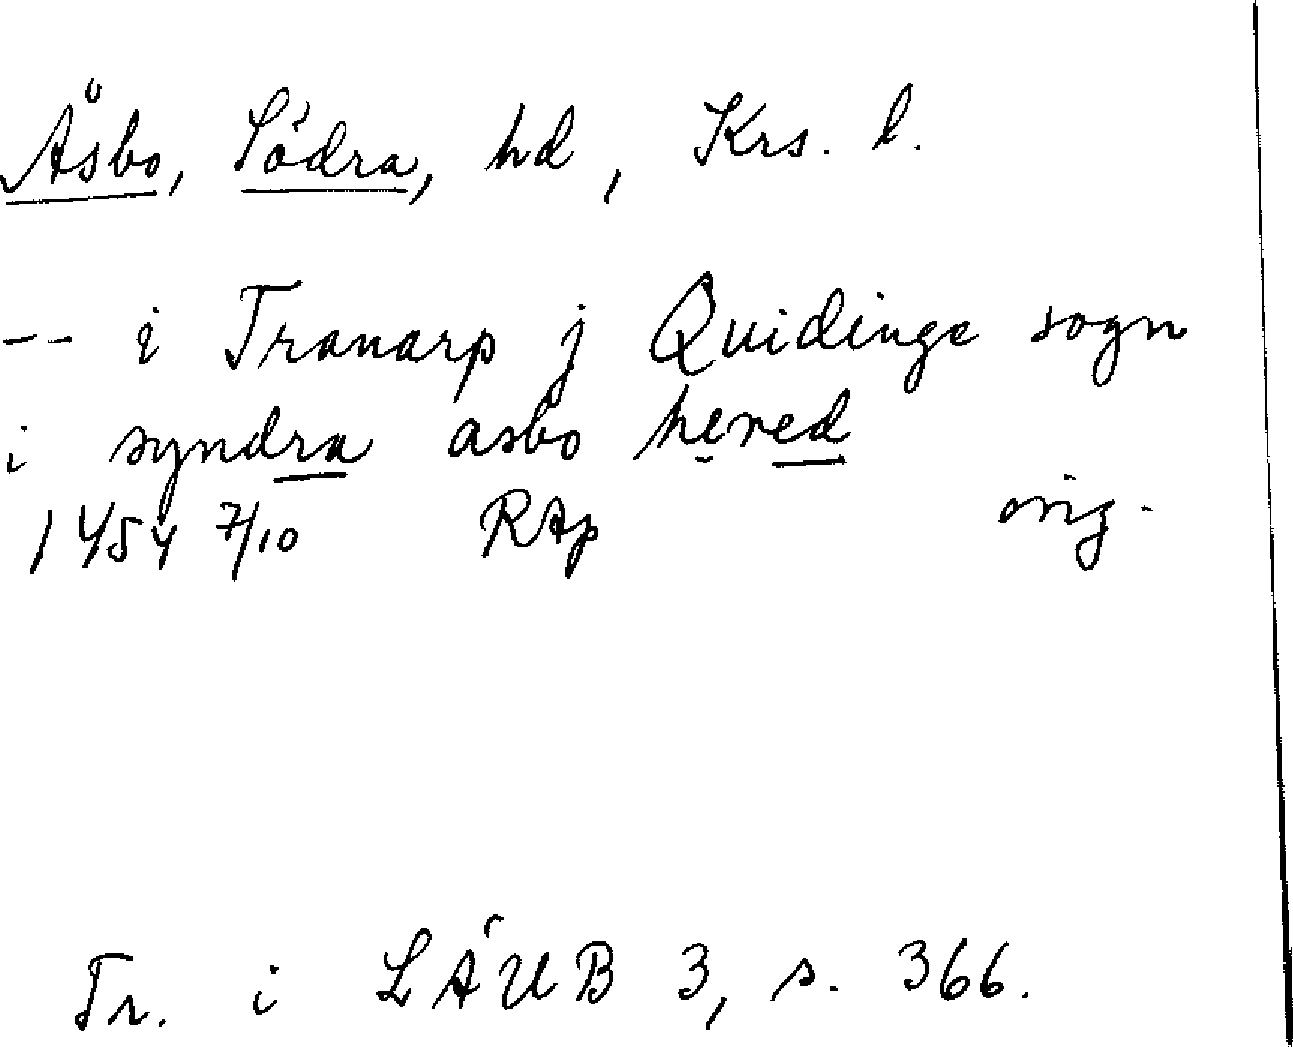 Åsbo, Södra, hd, Krs. l.
-- i Tranarp j Quidinge sogn
i syndra asbo hered
1454 7/10 RAp orig.
Tr. i LÄUB 3, s. 366.